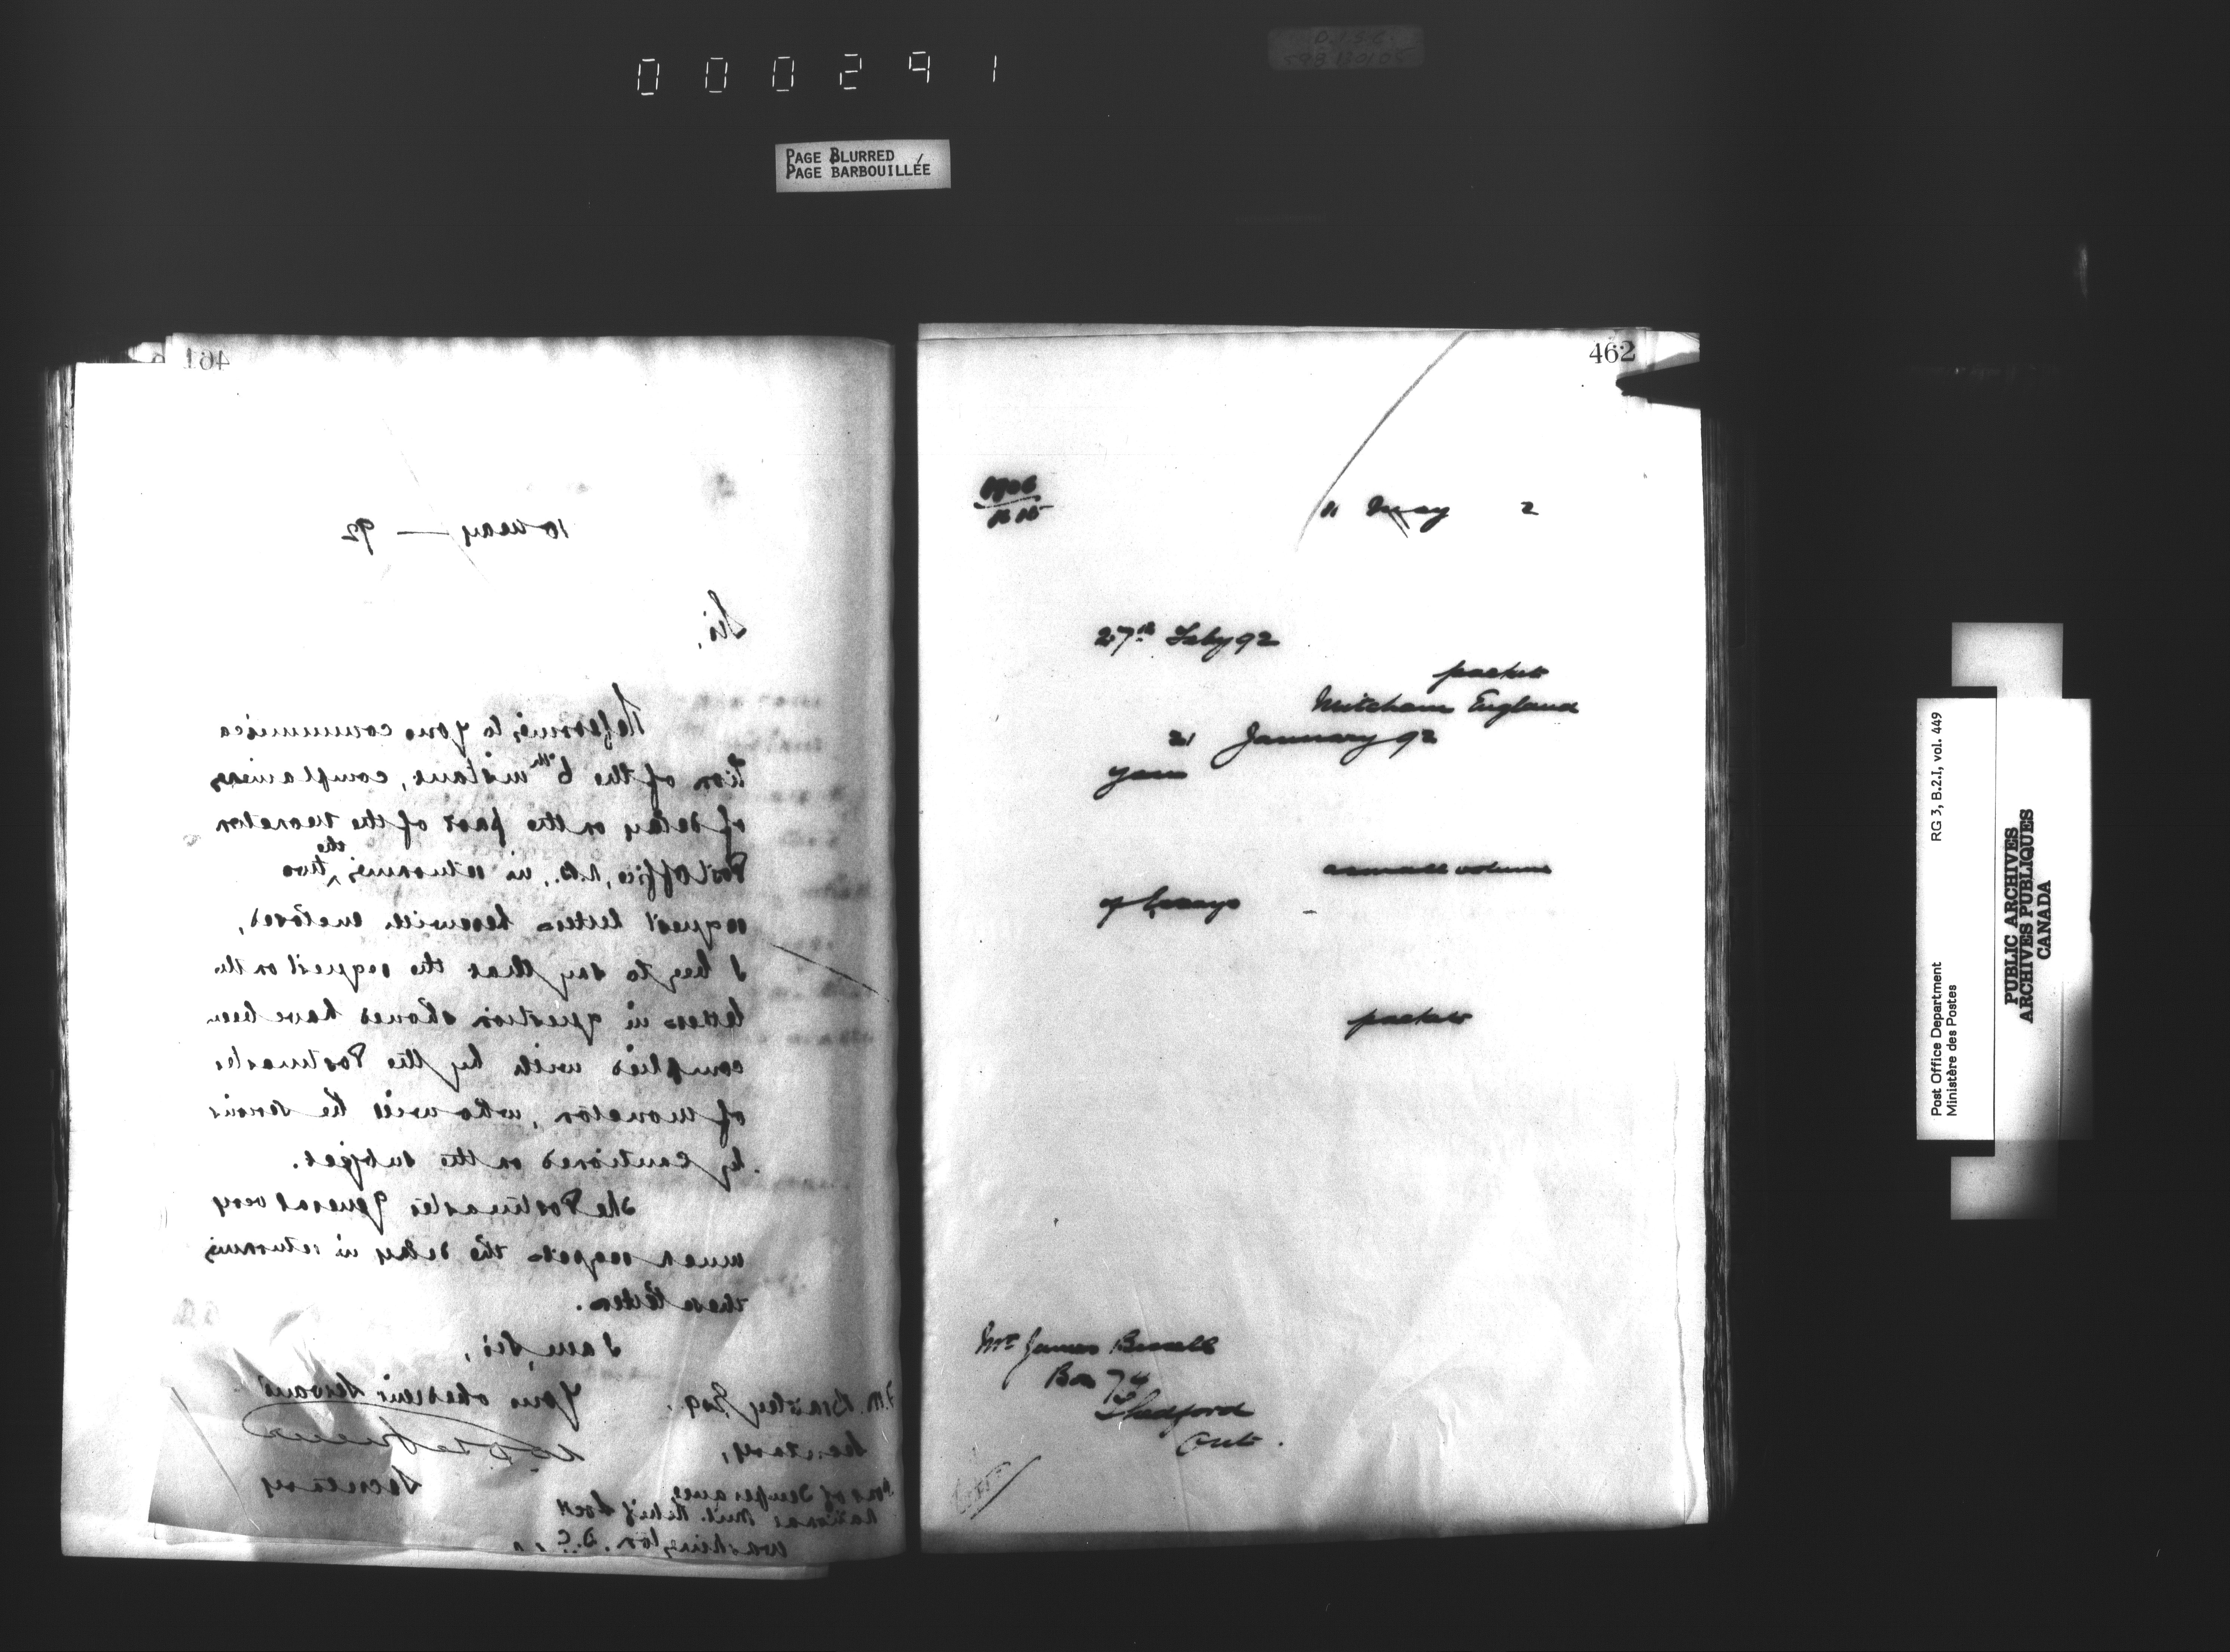 000291
PAGE BLURRED
PAGE BARBOUILLÉE
461
10 May — 92
Sir,
Referring to your communica
tion of the 6th instant, complaining
of delay on the part of the Moncton
Post Office, N.B., in returning the two
request letters herewith enclosed,
I beg to say that the request on the
letters in question should have been
complied with by the Postmaster
of Moncton, who will be serious
ly cautioned on the subject.
The Postmaster General very
much regrets the delay in returning
these letters.
I am, Sir,
Your obedient Servant
Secretary
F.M. Bradley Esq.
Secretary,
Sons of Temperance
National Mut. Relief Socy
Washington. D.C.
462
11 May 2
27th Feby 92
packet
Mitcham England
21 January 92
your
a small volume
of Essays
packet
Mr James Bissell
Box 74
Thedford
Ont.
Post Office Department RG 3, B.2.I, vol. 449
Ministère des Postes
PUBLIC ARCHIVES
ARCHIVES PUBLIQUES
CANADA